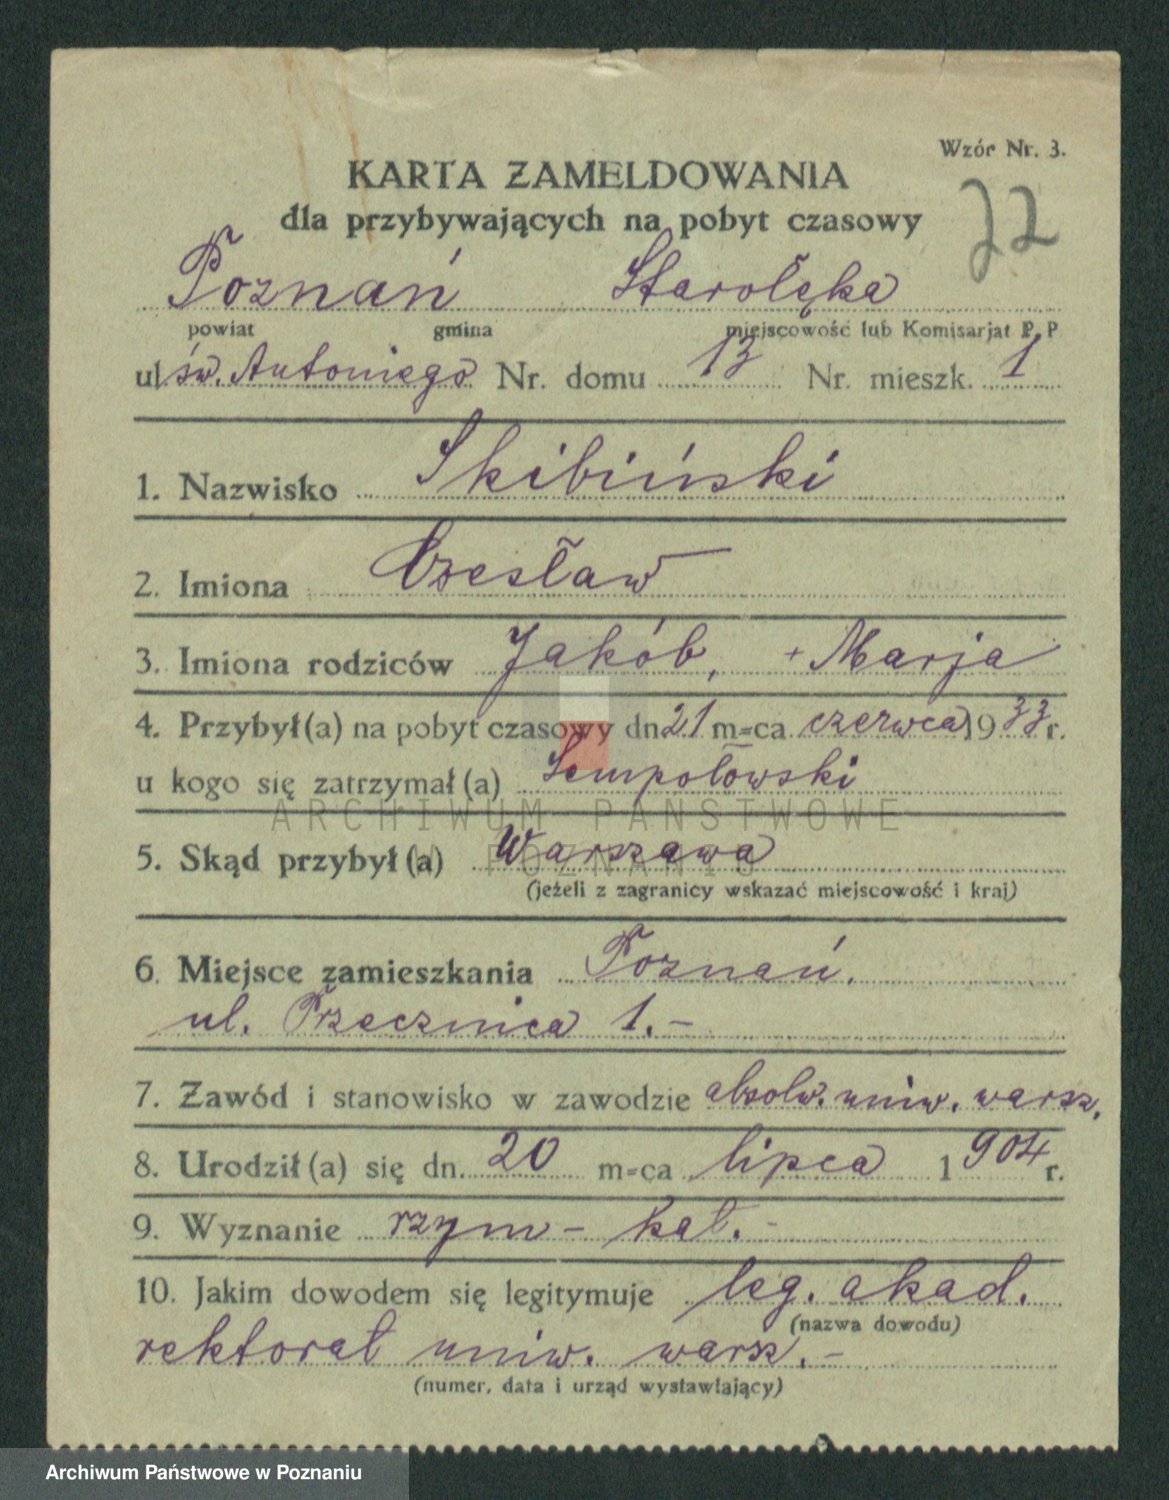 Wzór Nr. 3.
KARTA ZAMELDOWANIA
22
dla przybywających na pobyt czasowy
Poznań Starołęka
powiat gmina miejscowość lub Komisarjat P. P.
ul. św. Antoniego Nr. domu 13 Nr. mieszk. 1
1. Nazwisko Skibiński
2. Imiona Czesław
3. Imiona rodziców Jakób, + Marja
4. Przybył(a) na pobyt czasowy dn. 21 m-ca czerwca 1933 r.
u kogo się zatrzymał(a) Sempołowski
ARCHIWUM PAŃSTWOWE
W POZNANIU
5. Skąd przybył(a) Warszawa
(jeżeli z zagranicy wskazać miejscowość i kraj)
6. Miejsce zamieszkania Poznań,
ul. Przecznica 1.-
7. Zawód i stanowisko w zawodzie absolw. uniw. warsz.
8. Urodził(a) się dn. 20 m-ca lipca 1904 r.
9. Wyznanie rzym - kat. -
10. Jakim dowodem się legitymuje leg. akad.
(nazwa dowodu)
rektorat uniw. warsz. -
(numer, data i urząd wystawiający)
Archiwum Państwowe w Poznaniu